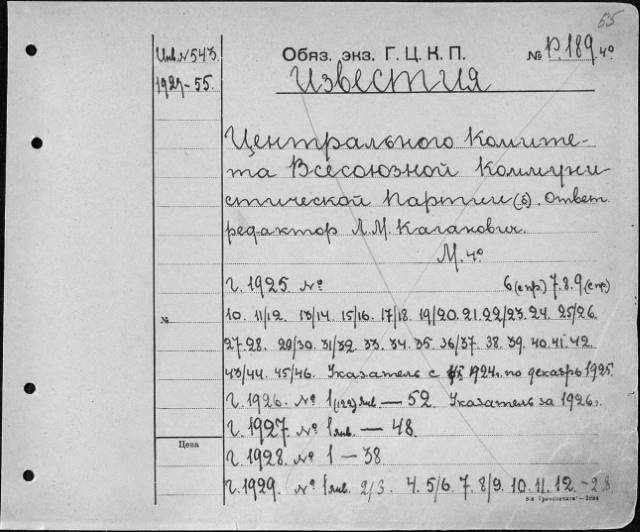 55
Инв. № 543
1927 - 55.
Обяз. экз. Г. Ц. К. П. № Р.189 4º
Известия
Центрального Комите-
та Всесоюзной Коммуни-
стической Партии (б). Ответ.
редактор Л. М. Каганович.
М. 4º
г. 1925. № 6 (с пр.) 7. 8. 9 (с пр.)
№ 10. 11/12. 13/14. 15/16. 17/18. 19/20. 21. 22/23. 24. 25/26.
27-28. 29/30. 31/32. 33. 34. 35. 36/37. 38. 39. 40. 41. 42.
43/44. 45/46. Указатель с 1924 г. по декабрь 1925.
г. 1926. № 1 (122) янв. — 52. Указатель за 1926 г.
г. 1927. № 1 янв. — 48.
Цена
г. 1928. № 1 — 38
г. 1929. № 1 янв. 2/3. 4. 5/6. 7. 8/9. 10. 11. 12. - 28